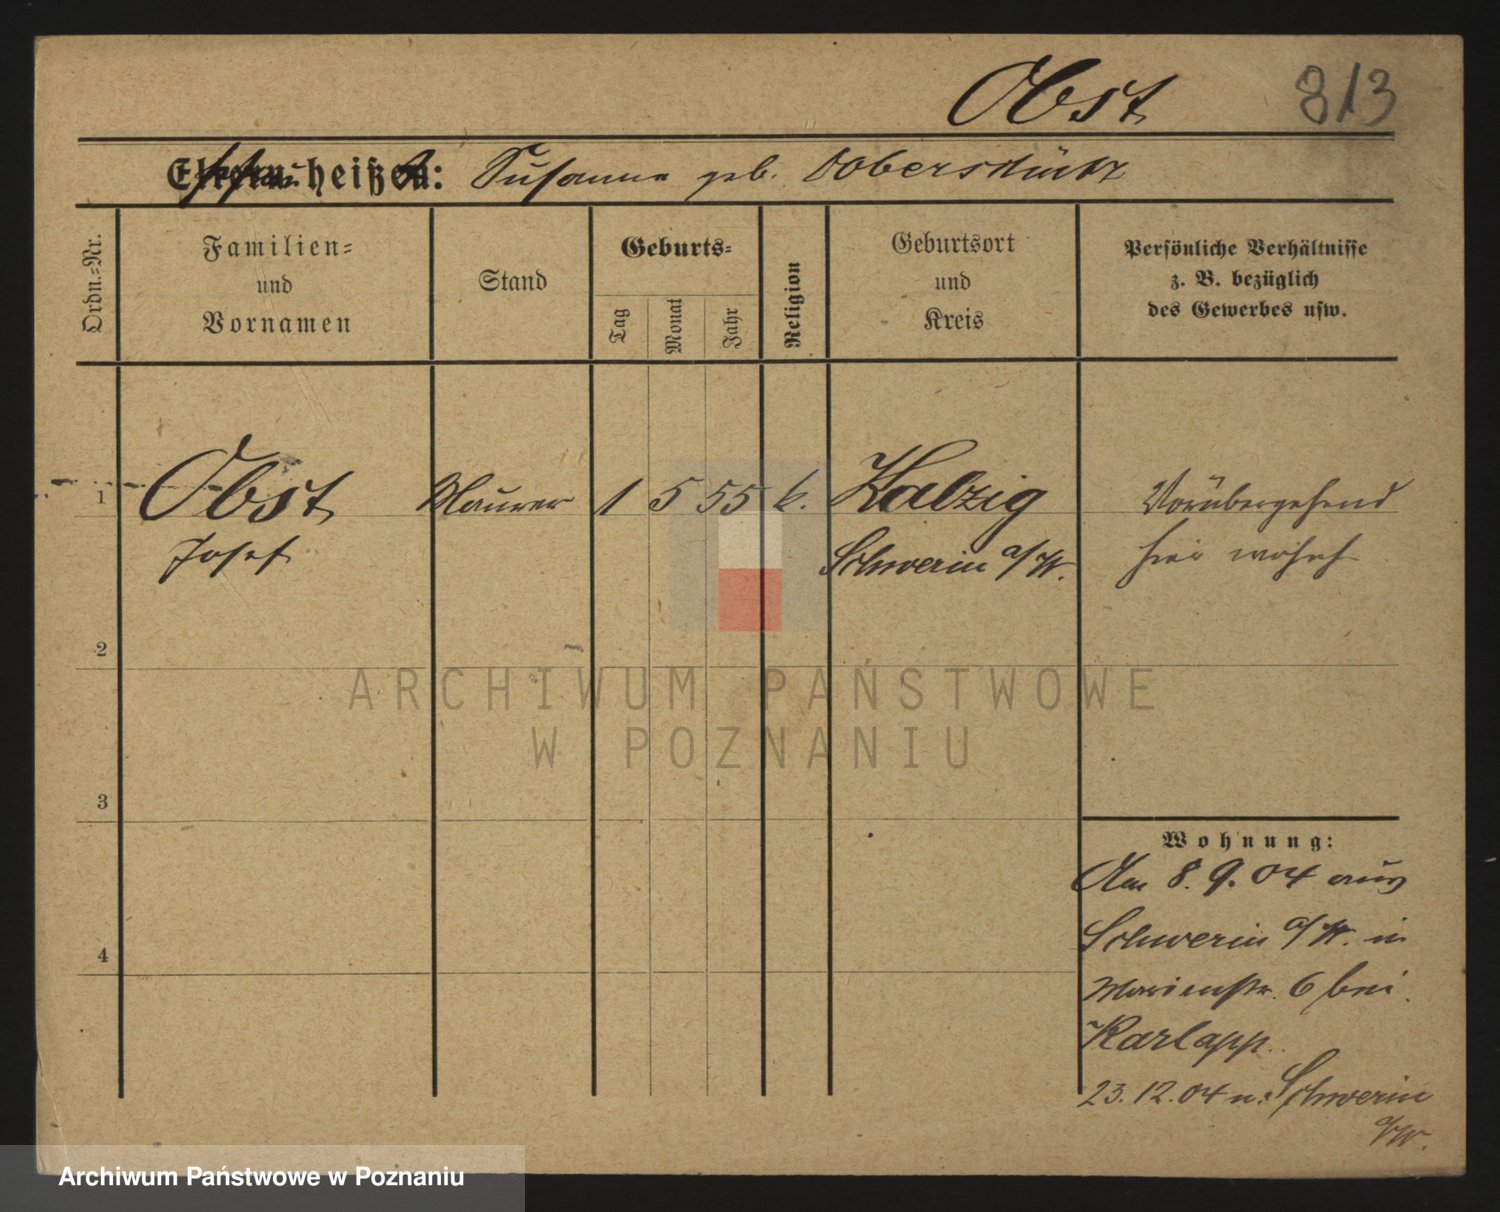 Obst 313
Ehefrau heißt: Susanne geb. Doberschütz
Ordn.=Nr.
Familien=
und
Vornamen
Stand
Geburts=
Tag
Monat
Jahr
Religion
Geburtsort
und
Kreis
Persönliche Verhältnisse
z. B. bezüglich
des Gewerbes usw.
1 Obst Maurer 1 5 55 k. Kalzig Vorübergehend
Josef Schwerin a/W. hier wohnh.
2
ARCHIWUM PAŃSTWOWE
W POZNANIU
3
Wohnung:
Am 8. 9. 04 aus
4 Schwerin a/W. in
Marienstr. 6 bei
Karlapp.
23. 12. 04 n. Schwerin
a/W.
Archiwum Państwowe w Poznaniu